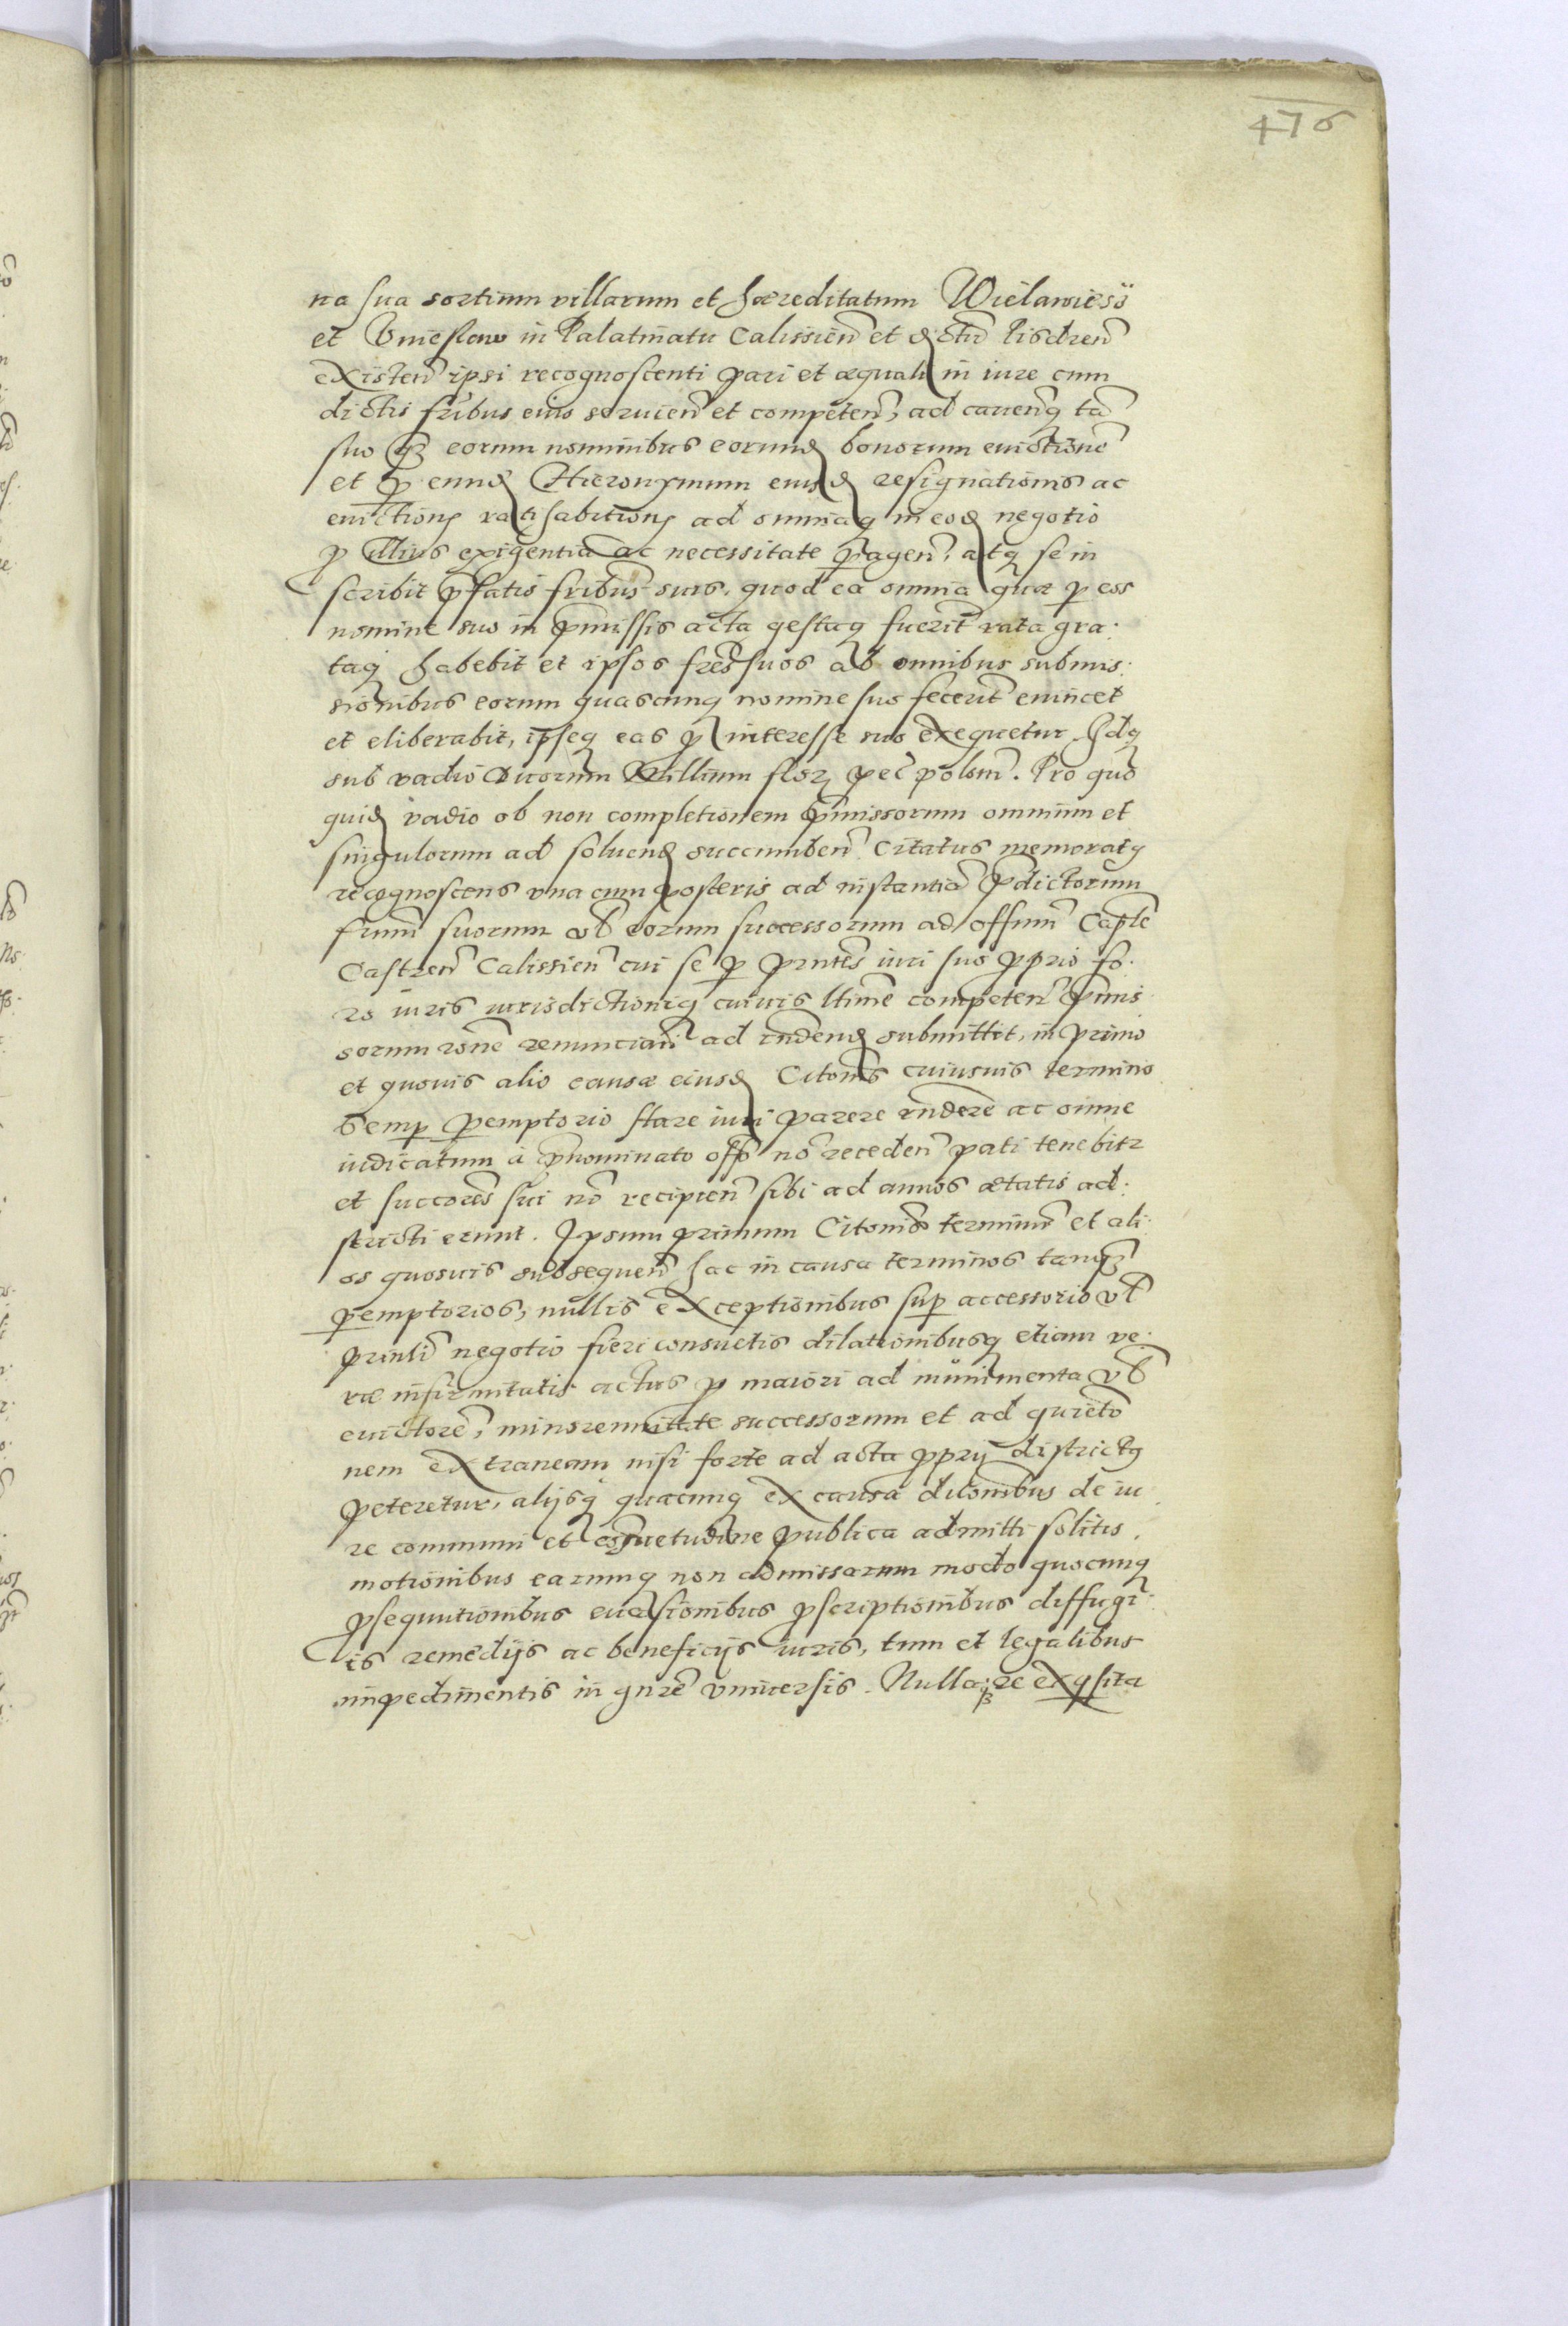 476
na sua sortium villarum et hæreditatum Wielawiess
et Vniesław in Palatinatu Calissien̄ et districtu
existen̄ ipsi recognoscenti pari et æquali in iure cum
dictis fr̄ibus eius seruien̄ et competen̄, ad cauenđ tā
suo q̃ eorum nominibus eorunđ bonorum euictionē
et ꝑ eunđ Hieronymum eiusđ resignationis ac
euictionis ratihabitionis ad omniaq̃ in eođ negotio
ꝓ illius exigentia ac necessitate ꝑagen̄, atq̃ se in
scribit p̄fatis fr̄ibus suis, quod ea omnia quæ ꝑ eos
nomine suo in p̄missis acta gestaq̃ fuerit̄ rata gra.
taq̃ habebit et ipsos fr̄es suos ab omnibus submis:
sionibus eorum quascunq̃ nomine suo fecerit̄ euincet
et eliberabit, ipseq̃ eas ꝓ interesse suo exequetur. Idq̃
sub vadio Millium flor̄ pec̄ polon̄. Pro quo
quiđ vadio ob non completionem p̄missorum omnium et
singulorum ad soluenđ succumben̄. Citatus memoratꝯ
recognoscens vna cum posteris ad instantiā p̄dictorum
fr̄um suorum vl̄ eorum successorum ad offm̄ Cap̄le
Castren̄ Calissien̄ cui se ꝑ p̄ntes iuri suo ꝓprio fo.
ro iuris iurisdictioniq̃ cuiuis ltime competen̄ p̄mis
sorum rōne renuncian̄ ad rn̄denđ submittit, in primo
et quouis alio causæ eiusđ Citōnis cuiusuis termino
semꝑ ꝑemptorio stare iuri parere rn̄dere ac omne
iudicatum à p̄nominato offo nō receden̄ pati tenebitr
et succōres sui nō recipien̄ sibi ad annos ætatis ad:
stricti erunt. Ipsum primum Citōnis terminū et ali
os quosuis subsequen̄ hac in causa terminos tanq̃
ꝑemptorios, nullis exceptionibus suꝑ accessorio vl̄
prinl̄i negotio fieri consuetis dilationibusq̃ etiam ve:
ræ infirmitatis actus ꝓ maiori ad munimenta vl̄
euictore, minorennitate successorum et ad quietō
nem extraneam nisi forte ad acta ꝓprij districtꝯ
peteretur, alijsq̃ quacunq̃ ex causa dilōnibus de iu
re communi et cōsuetudine publica admitti solitis.
motionibus earumq̃ non admissarum modo quocunq̃
ꝓsequutionibus euasionibus ꝓscriptionibus diffugi
is remedijs ac beneficijs iuris, tum et legalibus
impedimentis in gn̄re vniuersis. Nulla re exq̃sita